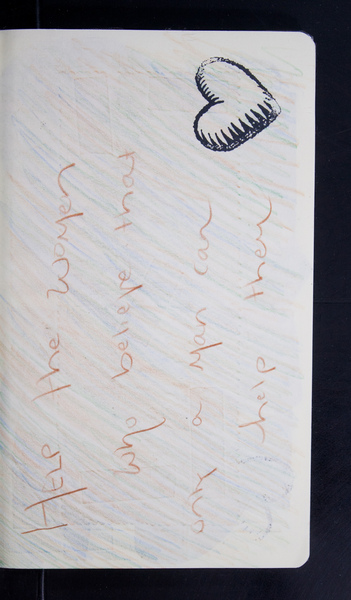 Help the women
who believe that
only a man can
help them